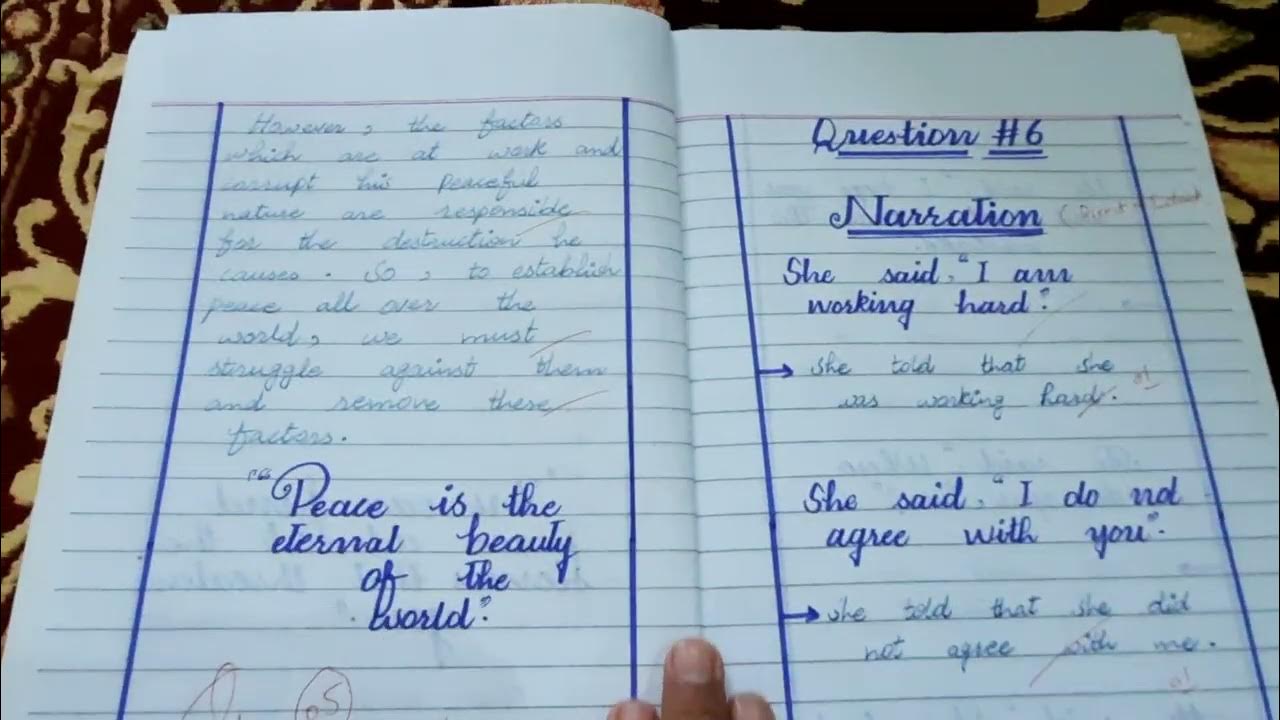 However, the factors
which are at work and
corrupt his peaceful
nature are responside
for the destruction he
causes. So, to establish
peace all over the
world, we must
struggle against them
and remove these
factors.
"Peace is the
eternal beauty
of the
world".
05
Question #6
Narration (Direct Indirect
She said, "I am
working hard".
She told that she
was working hard.
01
She said, "I do not
agree with you".
She told that she did
not agree with me.
01